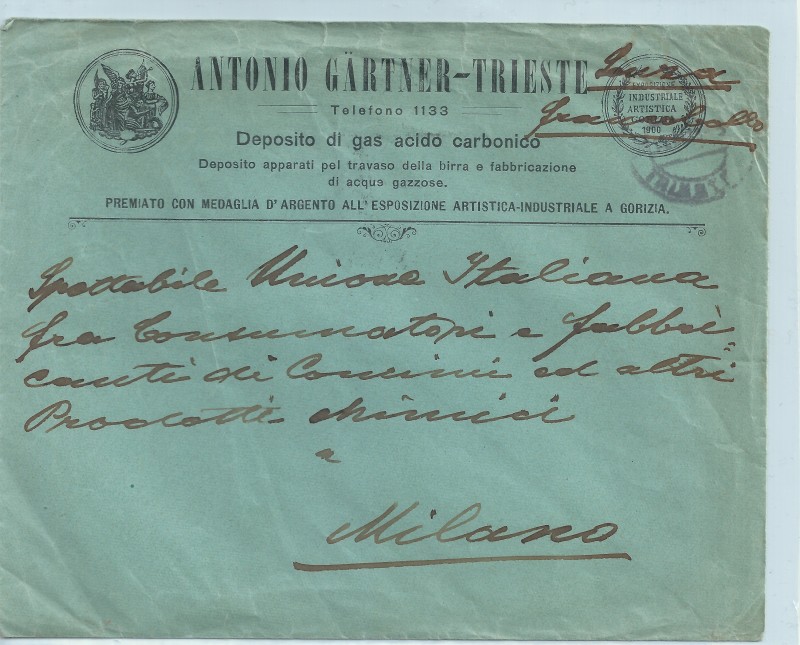 ANTONIO GÄRTNER-TRIESTE
Telefono 1133
Deposito di gas acido carbonico
Deposito apparati pel travaso della birra e fabbricazione
di acque gazzose.
PREMIATO CON MEDAGLIA D'ARGENTO ALL'ESPOSIZIONE ARTISTICA-INDUSTRIALE A GORIZIA.
INDUSTRIALE
ARTISTICA
1900
Senza
francobollo
TRIEST
Spettabile Unione Italiana
fra Consumatori e fabbri=
canti di Concimi ed altri
Prodotti chimici
a
Milano